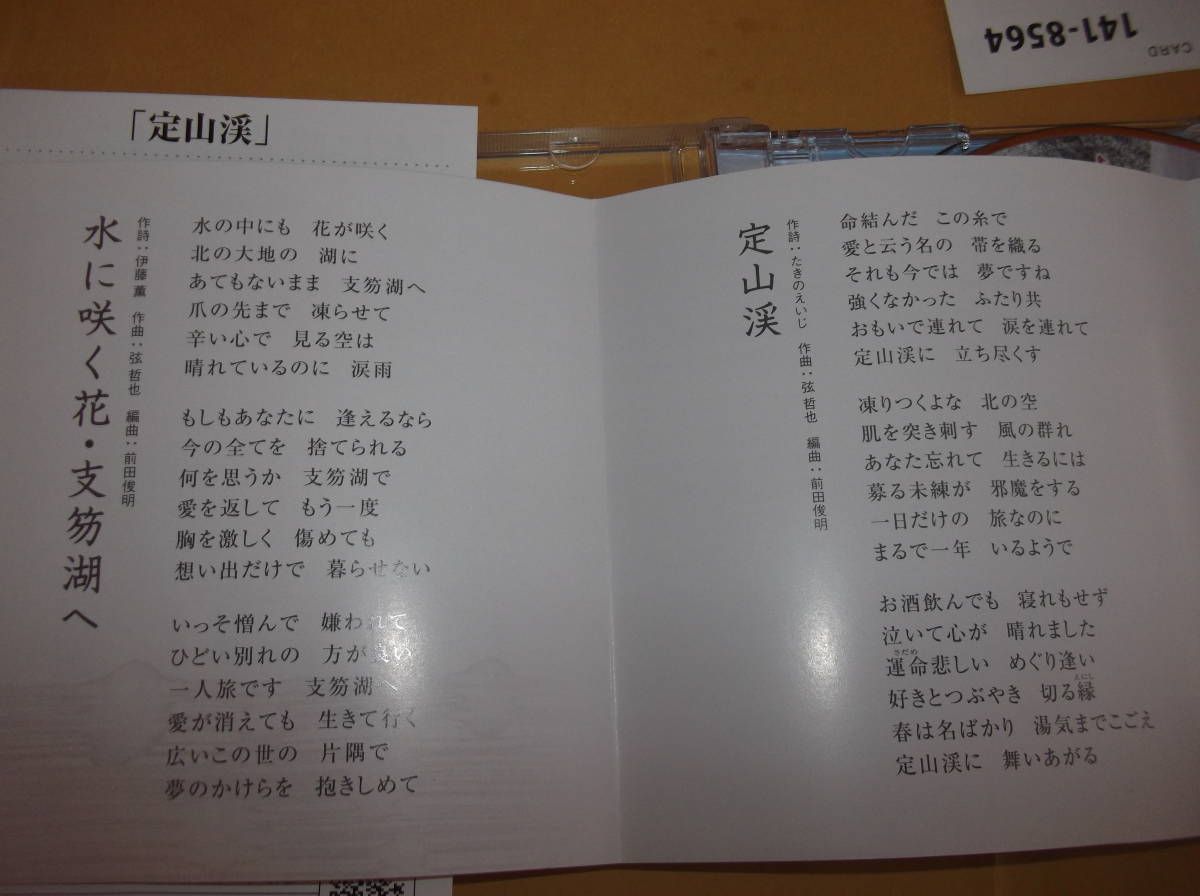 CARD
141-8564
「定山渓」
水に咲く花・支笏湖へ
作詩：伊藤薫　作曲：弦哲也　編曲：前田俊明
水の中にも　花が咲く
北の大地の　湖に
あてもないまま　支笏湖へ
爪の先まで　凍らせて
辛い心で　見る空は
晴れているのに　涙雨
もしもあなたに　逢えるなら
今の全てを　捨てられる
何を思うか　支笏湖で
愛を返して　もう一度
胸を激しく　傷めても
想い出だけで　暮らせない
いっそ憎んで　嫌われて
ひどい別れの　方が良い
一人旅です　支笏湖へ
愛が消えても　生きて行く
広いこの世の　片隅で
夢のかけらを　抱きしめて
定山渓
作詩：たきのえいじ　作曲：弦哲也　編曲：前田俊明
命結んだ　この糸で
愛と云う名の　帯を織る
それも今では　夢ですね
強くなかった　ふたり共
おもいで連れて　涙を連れて
定山渓に　立ち尽くす
凍りつくよな　北の空
肌を突き刺す　風の群れ
あなた忘れて　生きるには
募る未練が　邪魔をする
一日だけの　旅なのに
まるで一年　いるようで
お酒飲んでも　寝れもせず
泣いて心が　晴れました
運命悲しい　めぐり逢い
さだめ
好きとつぶやき　切る縁
えにし
春は名ばかり　湯気までこごえ
定山渓に　舞いあがる